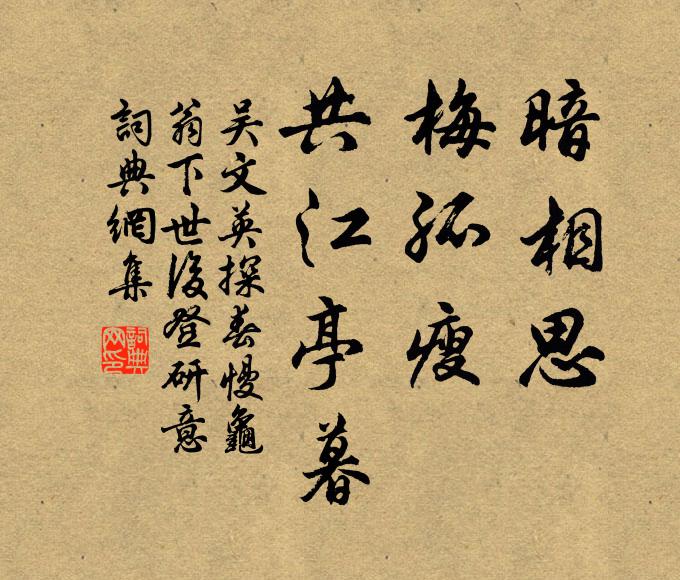 暗相思
梅孤瘦
共江亭暮
吴文英探春慢龜
翁下世後登研意
詞典網集
詞典網印